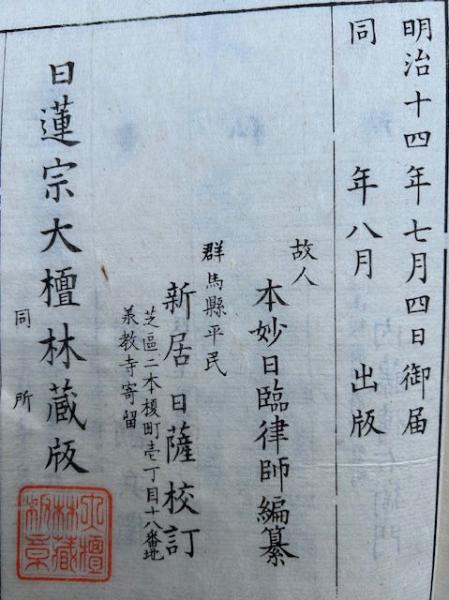 明治十四年七月四日御届
同　年八月　出版
故人
本妙日臨律師編纂
群馬縣平民
新居日薩校訂
芝區二本榎町壱丁目十八番地
承教寺寄留
日蓮宗大檀林蔵版
同所
大檀
林蔵